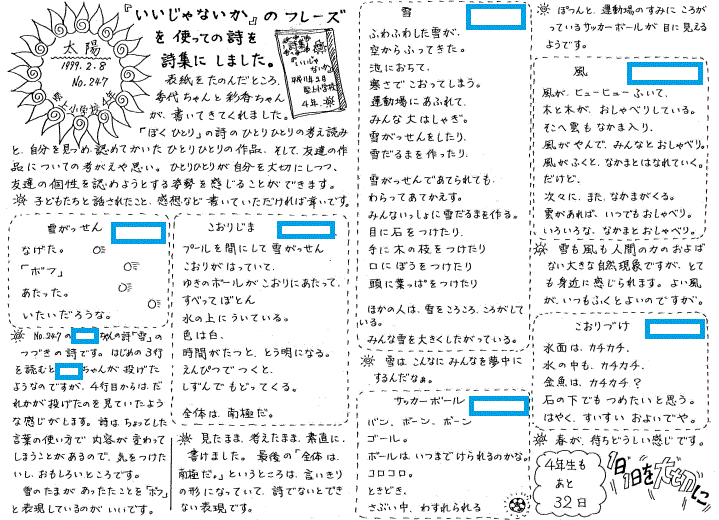 太陽
1999.2.8
No.247
県上小学校4年
『いいじゃないか』のフレーズ
を使っての詩を
詩集にしました。
表紙をたのんだところ、
香代ちゃんと彩香ちゃん
が、書いてきてくれました。
「ぼくひとり」の詩のひとりひとりの考え読み
と、自分を見つめ、認めてかいたひとりひとりの作品、そして、友達の作
品についての考がえや思い。ひとりひとりが自分を大切にしつつ、
友達の個性を認めようとする姿勢を感じることができます。
子どもたちと話されたこと、感想など書いていただければ幸いです。
詩集
いいじゃないか
4年
雪がっせん
なげた。
「ボフ」
あたった。
いたいだろうな。
No.247の ちゃんの詩「雪」の
つづきの詩です。はじめの3行
を読むと ちゃんが投げた
ようなのですが、4行目からは、だ
れかが投げたのを見ていたよう
な感じがします。詩は、ちょっとした
言葉の使い方で内容が変わって
しまうことがあるので、気をつけた
いし、おもしろいところです。
雪のたまがあったたことを「ボフ」
と表現しているのがいいです。
こおりじま
プールを間にして雪がっせん
こおりがはっていて、
ゆきのボールがこおりにあたって、
すべってぽとん
水の上にういている。
色は白、
時間がたつと、とう明になる。
えんぴつでつくと、
しずんでもどってくる。
全体は、南極だ。
見たまま、考えたまま、素直に、
書けました。最後の「全体は、
南極だ。」というところは、言いきり
の形になっていて、詩でないとでき
ない表現です。
雪
ふわふわした雪が、
空からふってきた。
池におちて、
寒さでこおってしまう。
運動場にあふれて、
みんな大はしゃぎ。
雪がっせんをしたり、
雪だるまを作ったり、
雪がっせんであてられても、
わらってあてかえす。
みんないっしょに雪だるまを作る。
目に石をつけたり
手に木の枝をつけたり
口にぼうをつけたり
頭に葉っぱをつけたり
ほかの人は、雪をころころ、ころがして
いる。
みんな雪を大きくしたがっている。
雪は、こんなにみんなを夢中に
するんだなぁ。
サッカーボール
バン、ボーン、ポーン
ゴール。
ボールは、いつまでけられるのかな。
コロコロ。
ときどき、
さぶい中、わすれられる
ぽつんと、運動場のすみにころが
っているサッカーボールが目に見える
ようです。
風
風が、ヒューヒューふいて、
木と木が、おしゃべりしている。
そこへ雲もなかま入り、
風がやんで、みんなとおしゃべり。
風がふくと、なかまとはなれていく。
だけど、
次々に、また、なかまがくる。
雲があれば、いつでもおしゃべり。
いろいろな、なかまとおしゃべり。
雪も風も人間の力のおよば
ない大きな自然現象ですが、とて
も身近に感じられます。よい風
が、いつもふくとよいのですが。
こおりづけ
水面は、カチカチ、
水の中も、カチカチ、
金魚は、カチカチ？
石の下でもつめたいと思う。
はやく、すいすいおよいでや。
春が、待ちどうしい感じです。
4年生も
あと
32日
1日1日を大切に